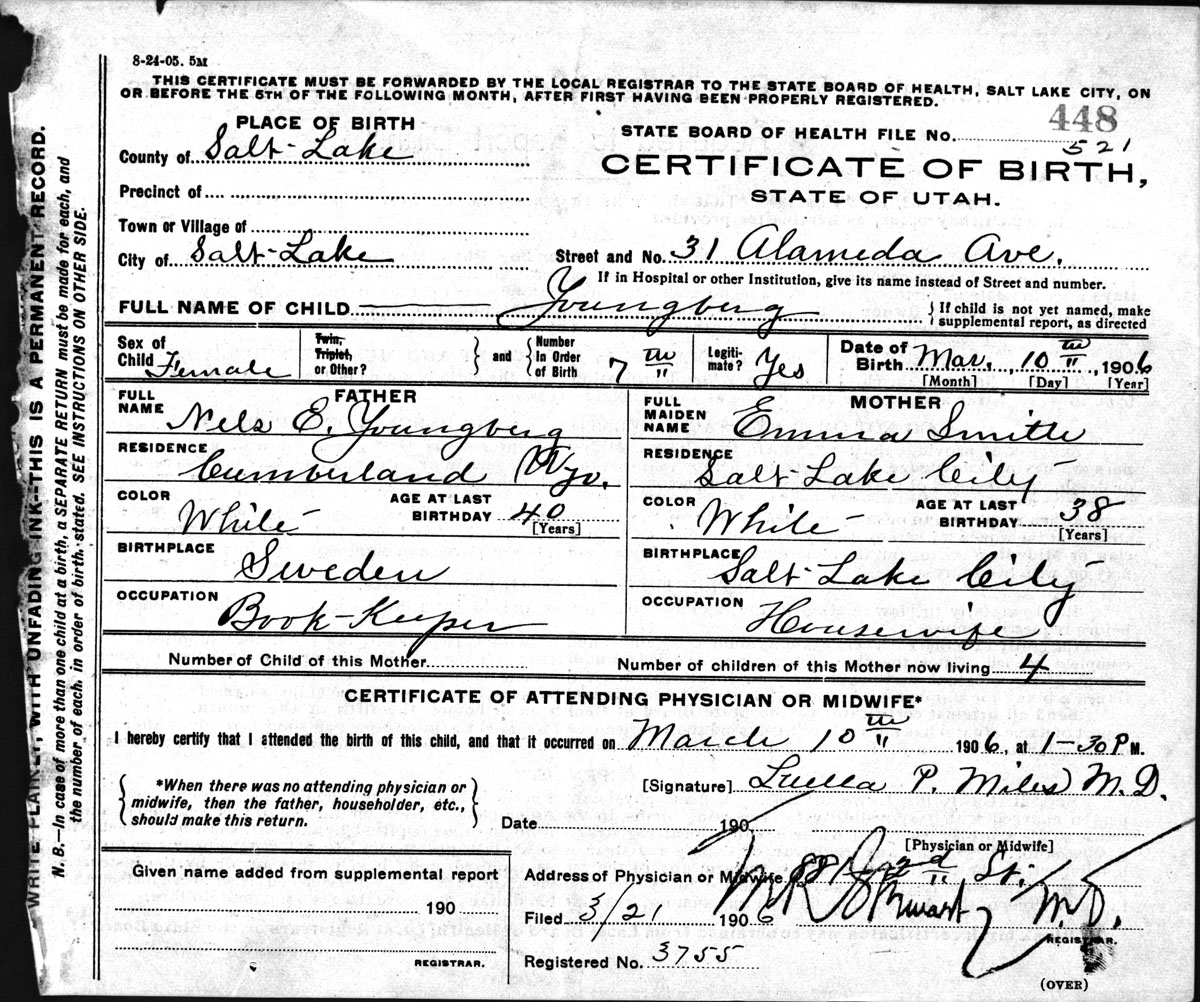 8-24-05. 5M
THIS CERTIFICATE MUST BE FORWARDED BY THE LOCAL REGISTRAR TO THE STATE BOARD OF HEALTH, SALT LAKE CITY, ON
OR BEFORE THE 5TH OF THE FOLLOWING MONTH, AFTER FIRST HAVING BEEN PROPERLY REGISTERED.
WRITE PLAINLY, WITH UNFADING INK-THIS IS A PERMANENT RECORD.
N. B.—In case of more than one child at a birth, a SEPARATE RETURN must be made for each, and
the number of each, in order of birth, stated. SEE INSTRUCTIONS ON OTHER SIDE.
PLACE OF BIRTH
County of Salt-Lake
Precinct of
Town or Village of
City of Salt-Lake
448
STATE BOARD OF HEALTH FILE No. 521
CERTIFICATE OF BIRTH,
STATE OF UTAH.
Street and No. 31 Alameda Ave.
If in Hospital or other Institution, give its name instead of Street and number.
FULL NAME OF CHILD Youngberg
If child is not yet named, make
supplemental report, as directed
Sex of Child Female
Twin, Triplet, or Other?
and
Number In Order of Birth 7th
Legitimate? Yes
Date of Birth Mar. 10th, 1906
[Month] [Day] [Year]
FATHER
FULL NAME Nels E. Youngberg
RESIDENCE Cumberland Wyo.
COLOR White
AGE AT LAST BIRTHDAY 40
[Years]
BIRTHPLACE Sweden
OCCUPATION Book-Keeper
MOTHER
FULL MAIDEN NAME Emma Smith
RESIDENCE Salt-Lake City
COLOR White
AGE AT LAST BIRTHDAY 38
[Years]
BIRTHPLACE Salt-Lake City
OCCUPATION Housewife
Number of Child of this Mother
Number of children of this Mother now living 4
CERTIFICATE OF ATTENDING PHYSICIAN OR MIDWIFE*
I hereby certify that I attended the birth of this child, and that it occurred on March 10th 1906, at 1-30 P M.
*When there was no attending physician or
midwife, then the father, householder, etc.,
should make this return.
[Signature] Luella P. Miles M.D.
Date 190
[Physician or Midwife]
Given name added from supplemental report
190
REGISTRAR.
Address of Physician or Midwife 2nd St.
Filed 3/21 1906
M.D.
REGISTRAR.
Registered No. 3755
(OVER)